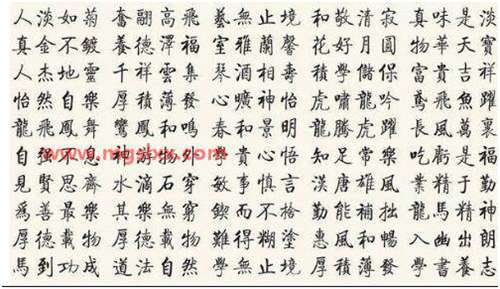 人淡如菊 奮翮高飛 藝無止境 和敬清寂 真味是淡
真金不鍍 養德澤福 室雅蘭馨 花好月圓 物華天寶
人杰地靈 千祥雲集 琴酒相壽 積學儲保 富貴吉祥
怡然自樂 厚積薄發 心曠神怡 虎嘯龍吟 鳶飛魚躍
龍飛鳳舞 鸞鳳和鳴 春和景明 龍騰虎躍 長風萬裏
自強不息 神游物外 和貴心悟 知足常樂 吃虧是福
見賢思齊 水滴石穿 敏事慎言 漢唐雄風 業精于勤
爲善最樂 其樂無窮 鍥而不捨 勤能補拙 龍馬精神
厚德載物 厚德載物 難得糊塗 惠風和暢 入幽出朗
馬到功成 道法自然 學無止境 厚積薄發 學書養志